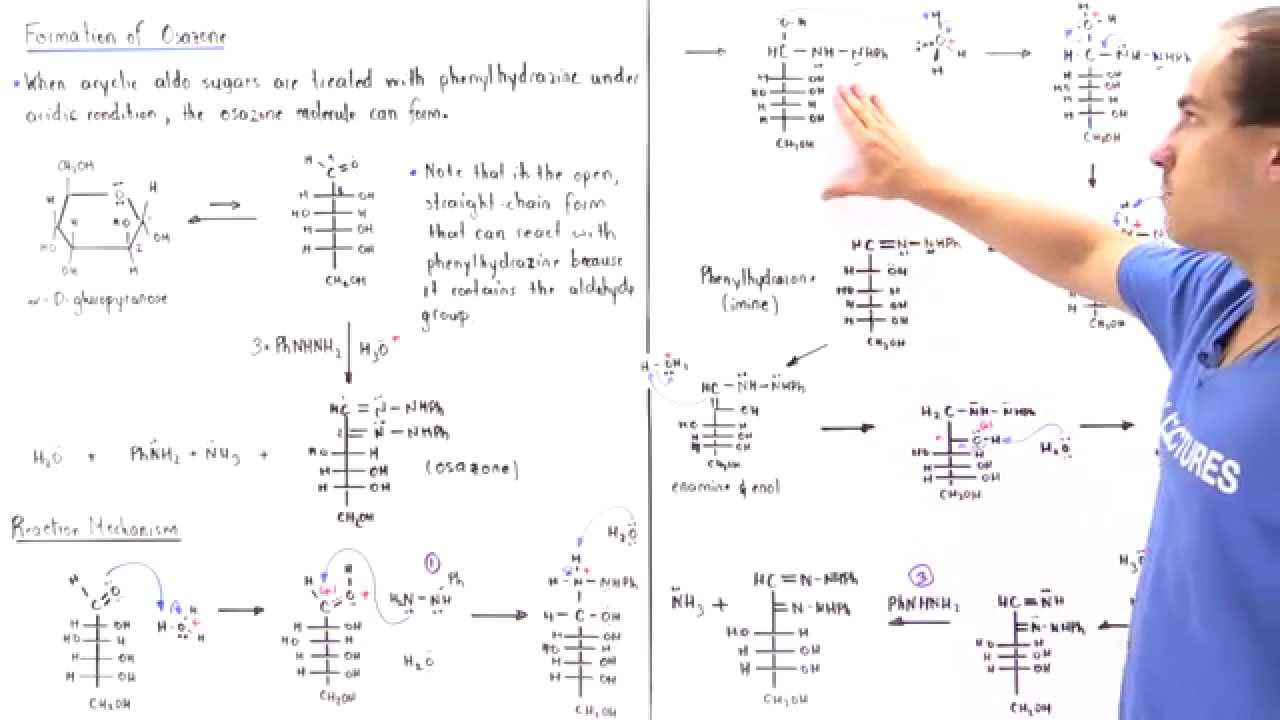 Formation of Osazone
• When acyclic aldo sugars are treated with phenylhydrazine under
acidic condition, the osazone molecule can form.
CH2OH
H
O
H
H
HO
HO
OH
OH
H
2
α-D-glucopyranose
H O
C
H OH
HO H
H OH
H OH
CH2OH
• Note that it's the open,
straight-chain form
that can react with
phenylhydrazine because
it contains the aldehyde
group
3 · PhNHNH2
H3O+
HC = N – NHPh
2 = N – NHPh
HO H
H OH
H OH
CH2OH
H2O + PhNH2 + NH3 +
(osazone)
Reaction Mechanism
H O
C
H OH
HO H
H OH
H OH
CH2OH
H – O – H
H
+
H
H O +
C
H OH
HO H
H OH
H OH
CH2OH
1
H2N – NH
Ph
H2O
H2O
H
H – N – NHPh
+
H – C – OH
H OH
HO H
H OH
H OH
CH2OH
O-H
HC – NH – NHPh
H OH
HO OH
H H
H OH
CH2OH
H
O +
H
H
H
O +
H
H C – NH – NHPh
H OH
HO OH
H H
H OH
CH2OH
Phenylhydrazone
(imine)
HC = N – NHPh
H OH
HO H
H OH
H OH
CH2OH
H
H
+
N – N
H
CH2OH
H – OH2
+
HC – NH – NHPh
OH
HO H
H OH
H OH
CH2OH
enamine & enol
H2C – NH – NHPh
O – H
HO H
H OH
H OH
CH2OH
H2O
H3O
HC = NH
= N – NHPh
HO H
H OH
H OH
CH2OH
3
PhNHNH2
HC = N – NHPh
= N – NHPh
HO H
H OH
H OH
CH2OH
NH3 +
LECTURES